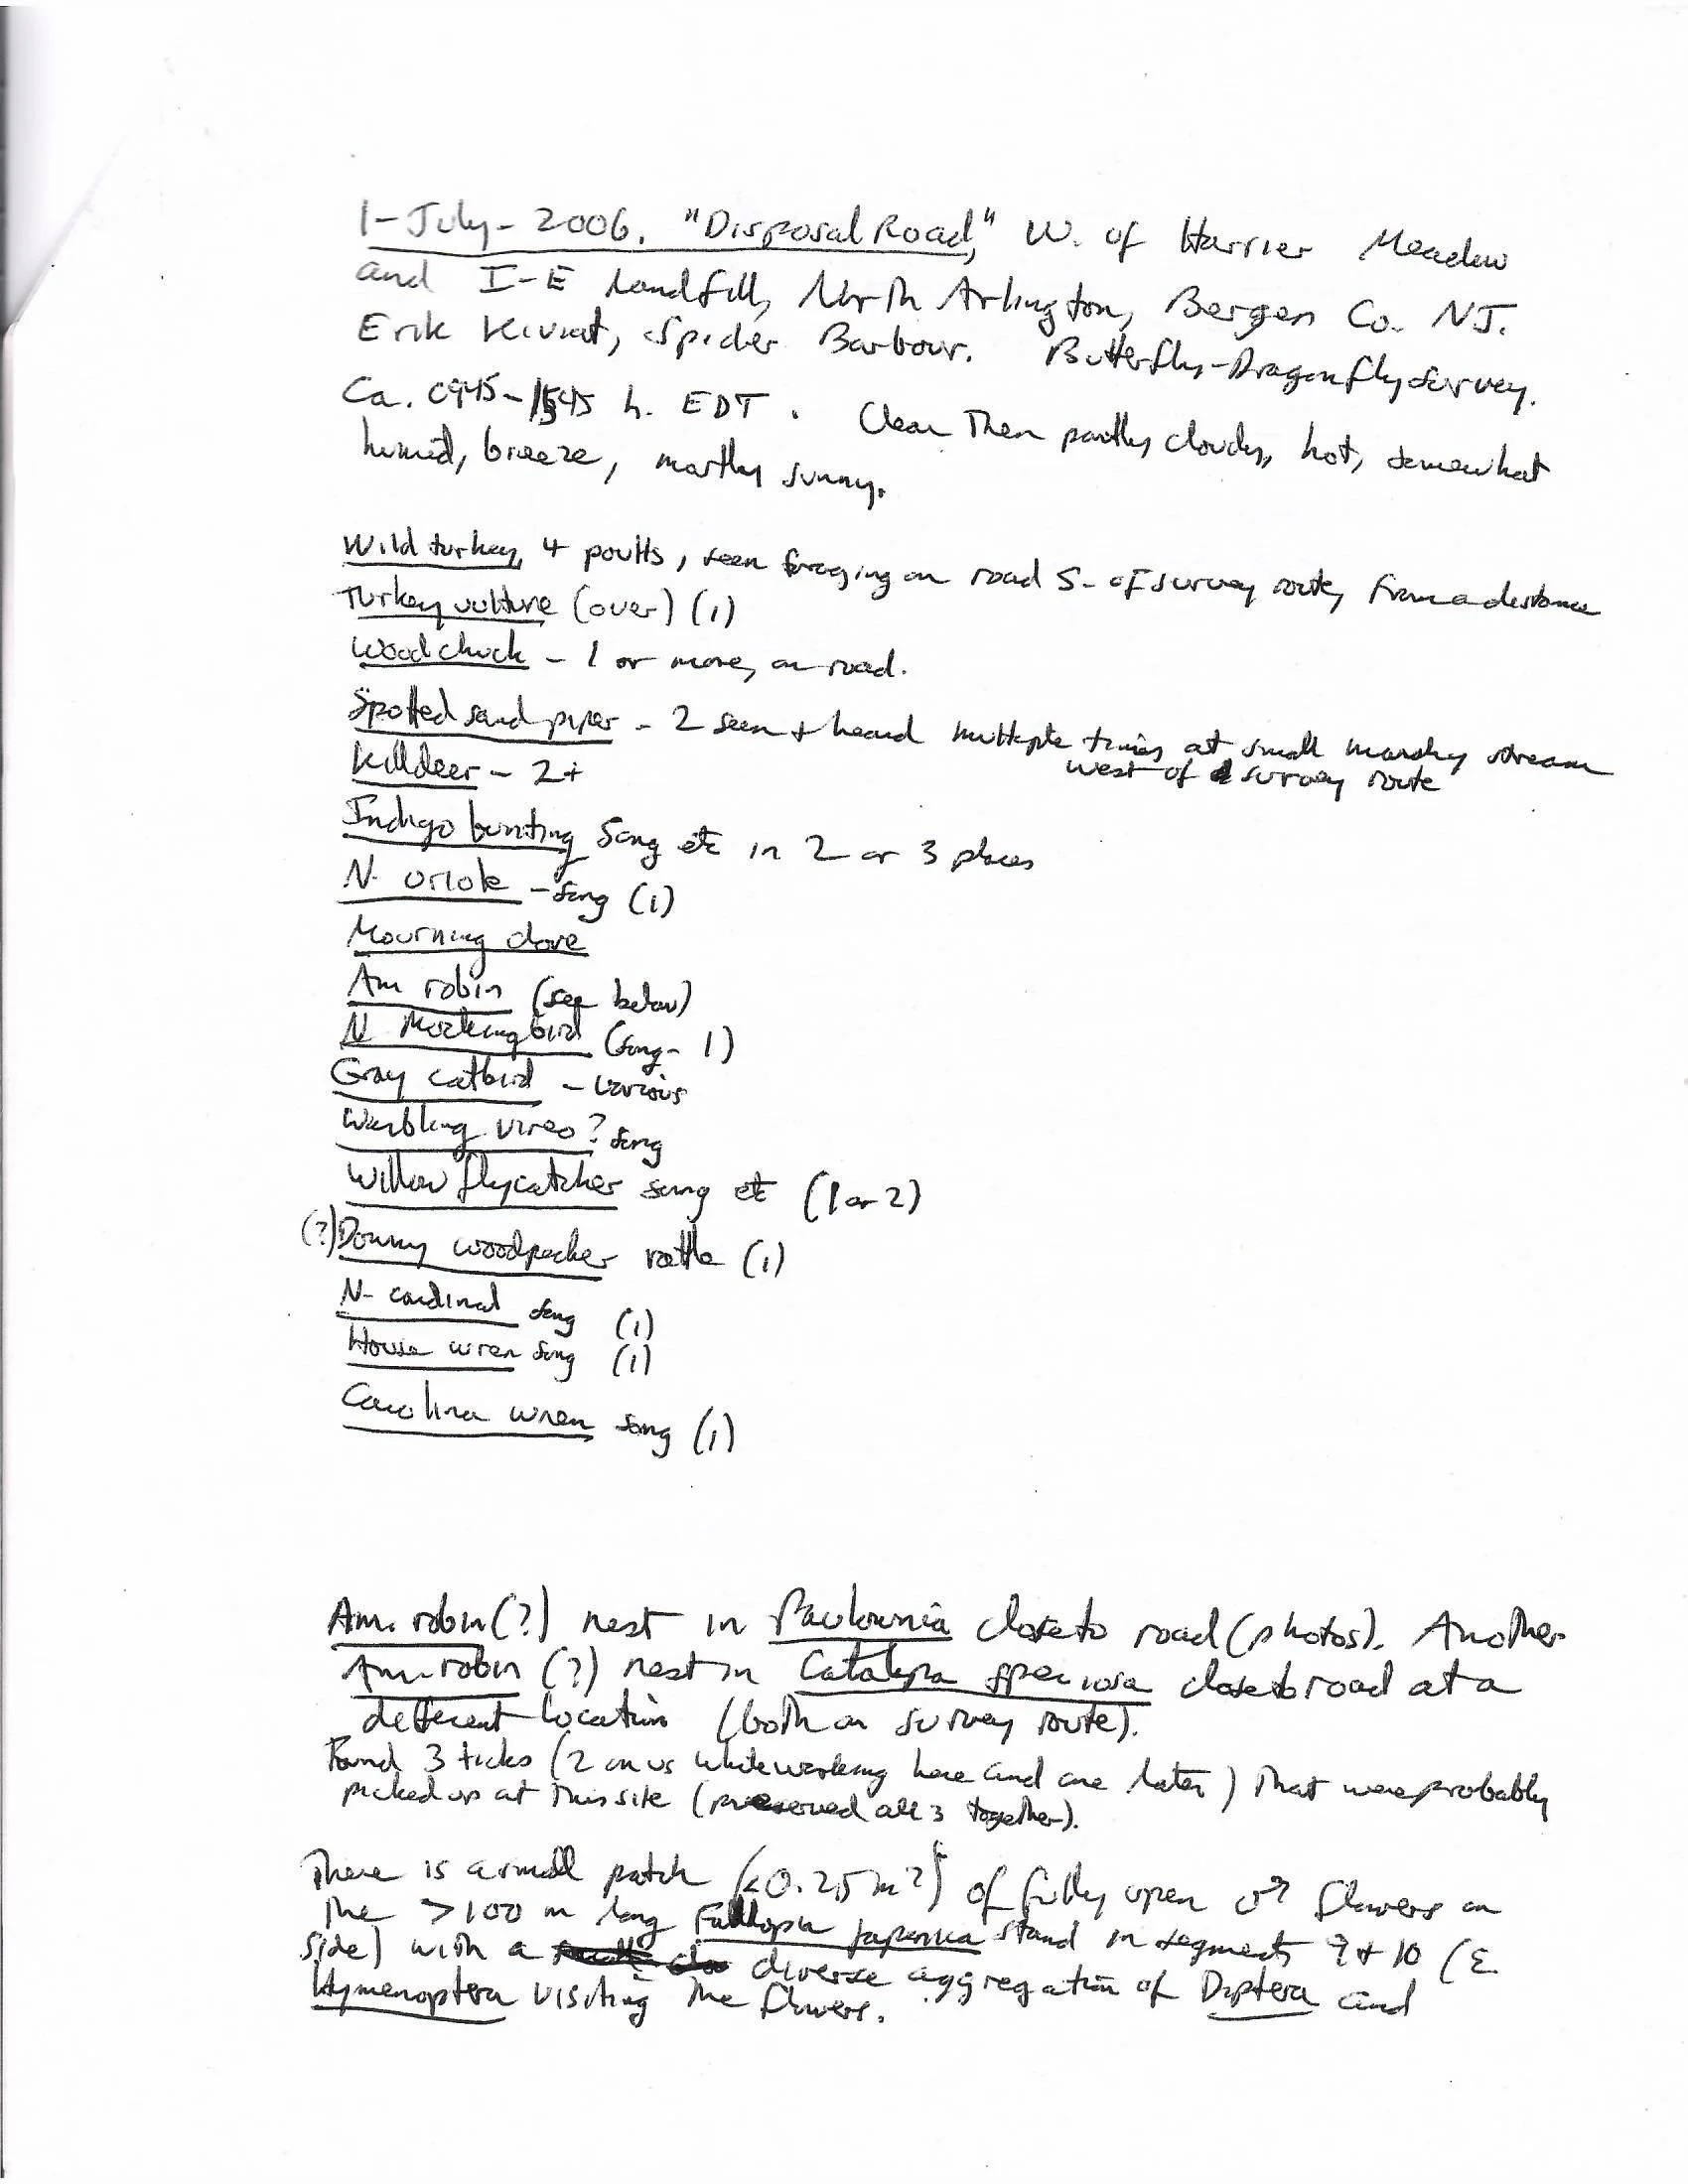 1-July-2006. "Disposal Road," W. of Harrier Meadow
and I-E Landfill, North Arlington, Bergen Co. NJ.
Erik Kiviat, Spider Barbour. Butterfly-Dragonfly Survey.
Ca. 0945-1545 h. EDT. Clear then partly cloudy, hot, somewhat
humid, breeze, mostly sunny.
Wild turkey, 4 poults, seen foraging on road S- of survey route, from a distance
Turkey vulture (over) (1)
Woodchuck - 1 or more, on road.
Spotted sandpiper - 2 seen + heard multiple times at small marshy stream
west of survey route
Killdeer - 2+
Indigo bunting song etc in 2 or 3 places
N. oriole - song (1)
Mourning dove
Am robin (see below)
N Mockingbird (song- 1)
Gray catbird - various
Warbling vireo? song
Willow flycatcher song etc (1 or 2)
(?) Downy woodpecker rattle (1)
N- cardinal song (1)
House wren song (1)
Carolina wren song (1)
Am. robin (?) nest in Paulownia close to road (photos). Another
Am. robin (?) nest in Catalpa speciosa close to road at a
different location (both on survey route).
Found 3 ticks (2 on us while working here and one later) that were probably
picked up at this site (preserved all 3 together).
There is a small patch (<0.25 m²) of fully open flowers on
the >100 m long Fallopia japonica stand in segments 9 + 10 (E.
side) with a diverse aggregation of Diptera and
Hymenoptera visiting the flowers.